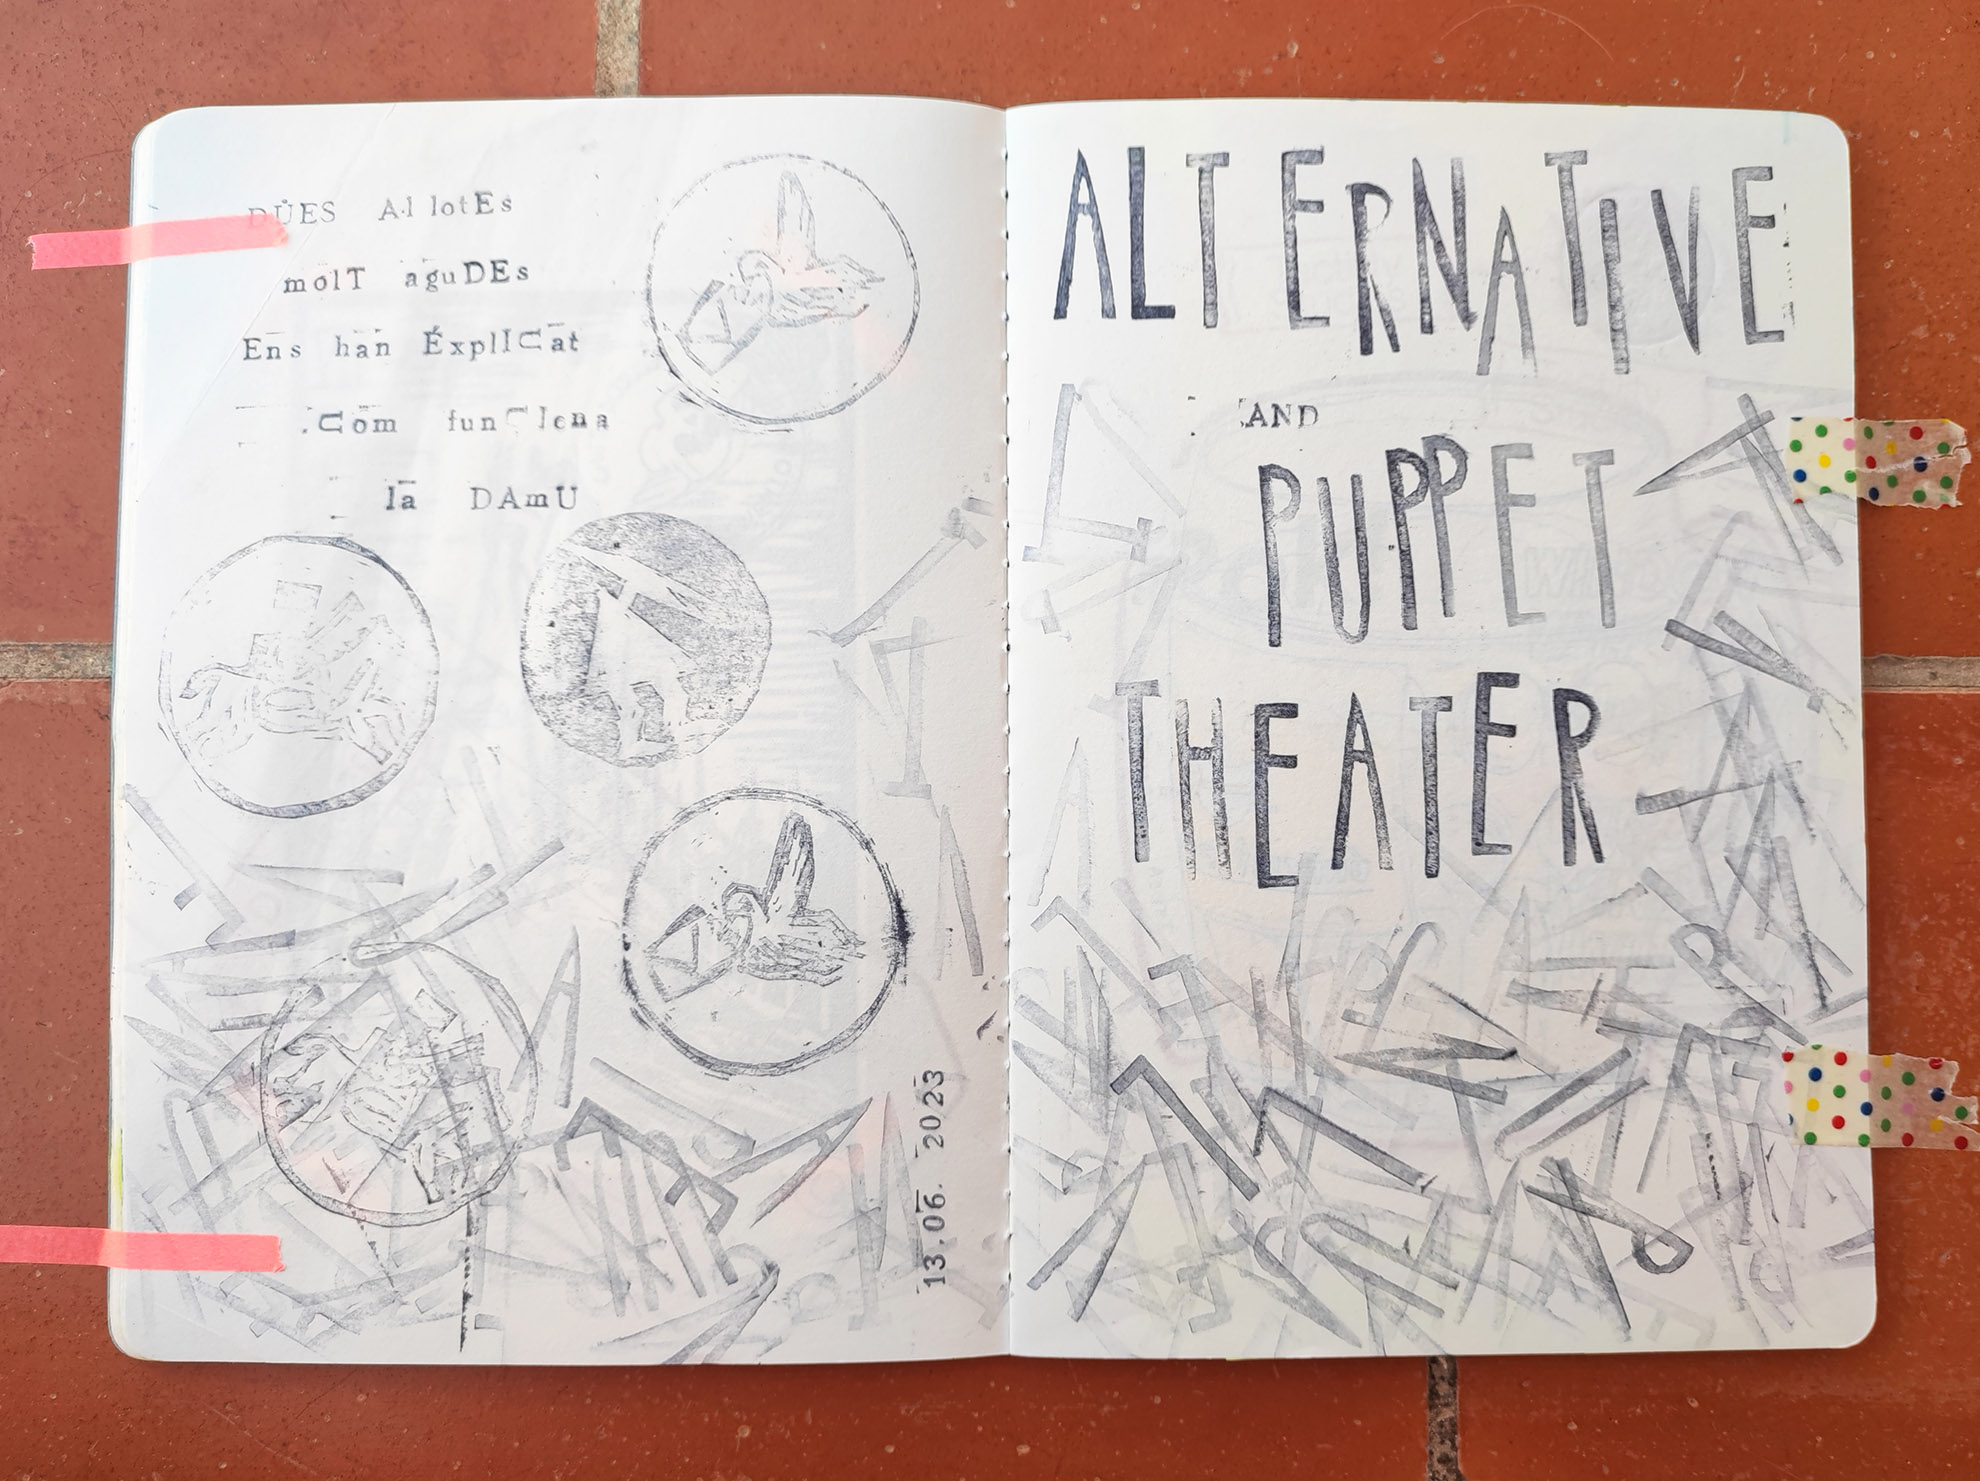 DÜES Al lotEs
molT aguDEs
Ens han ÉxplICat
Com funCIena
la DAmU
13.06.2023
ALTERNATIVE
AND
PUPPET
THEATER